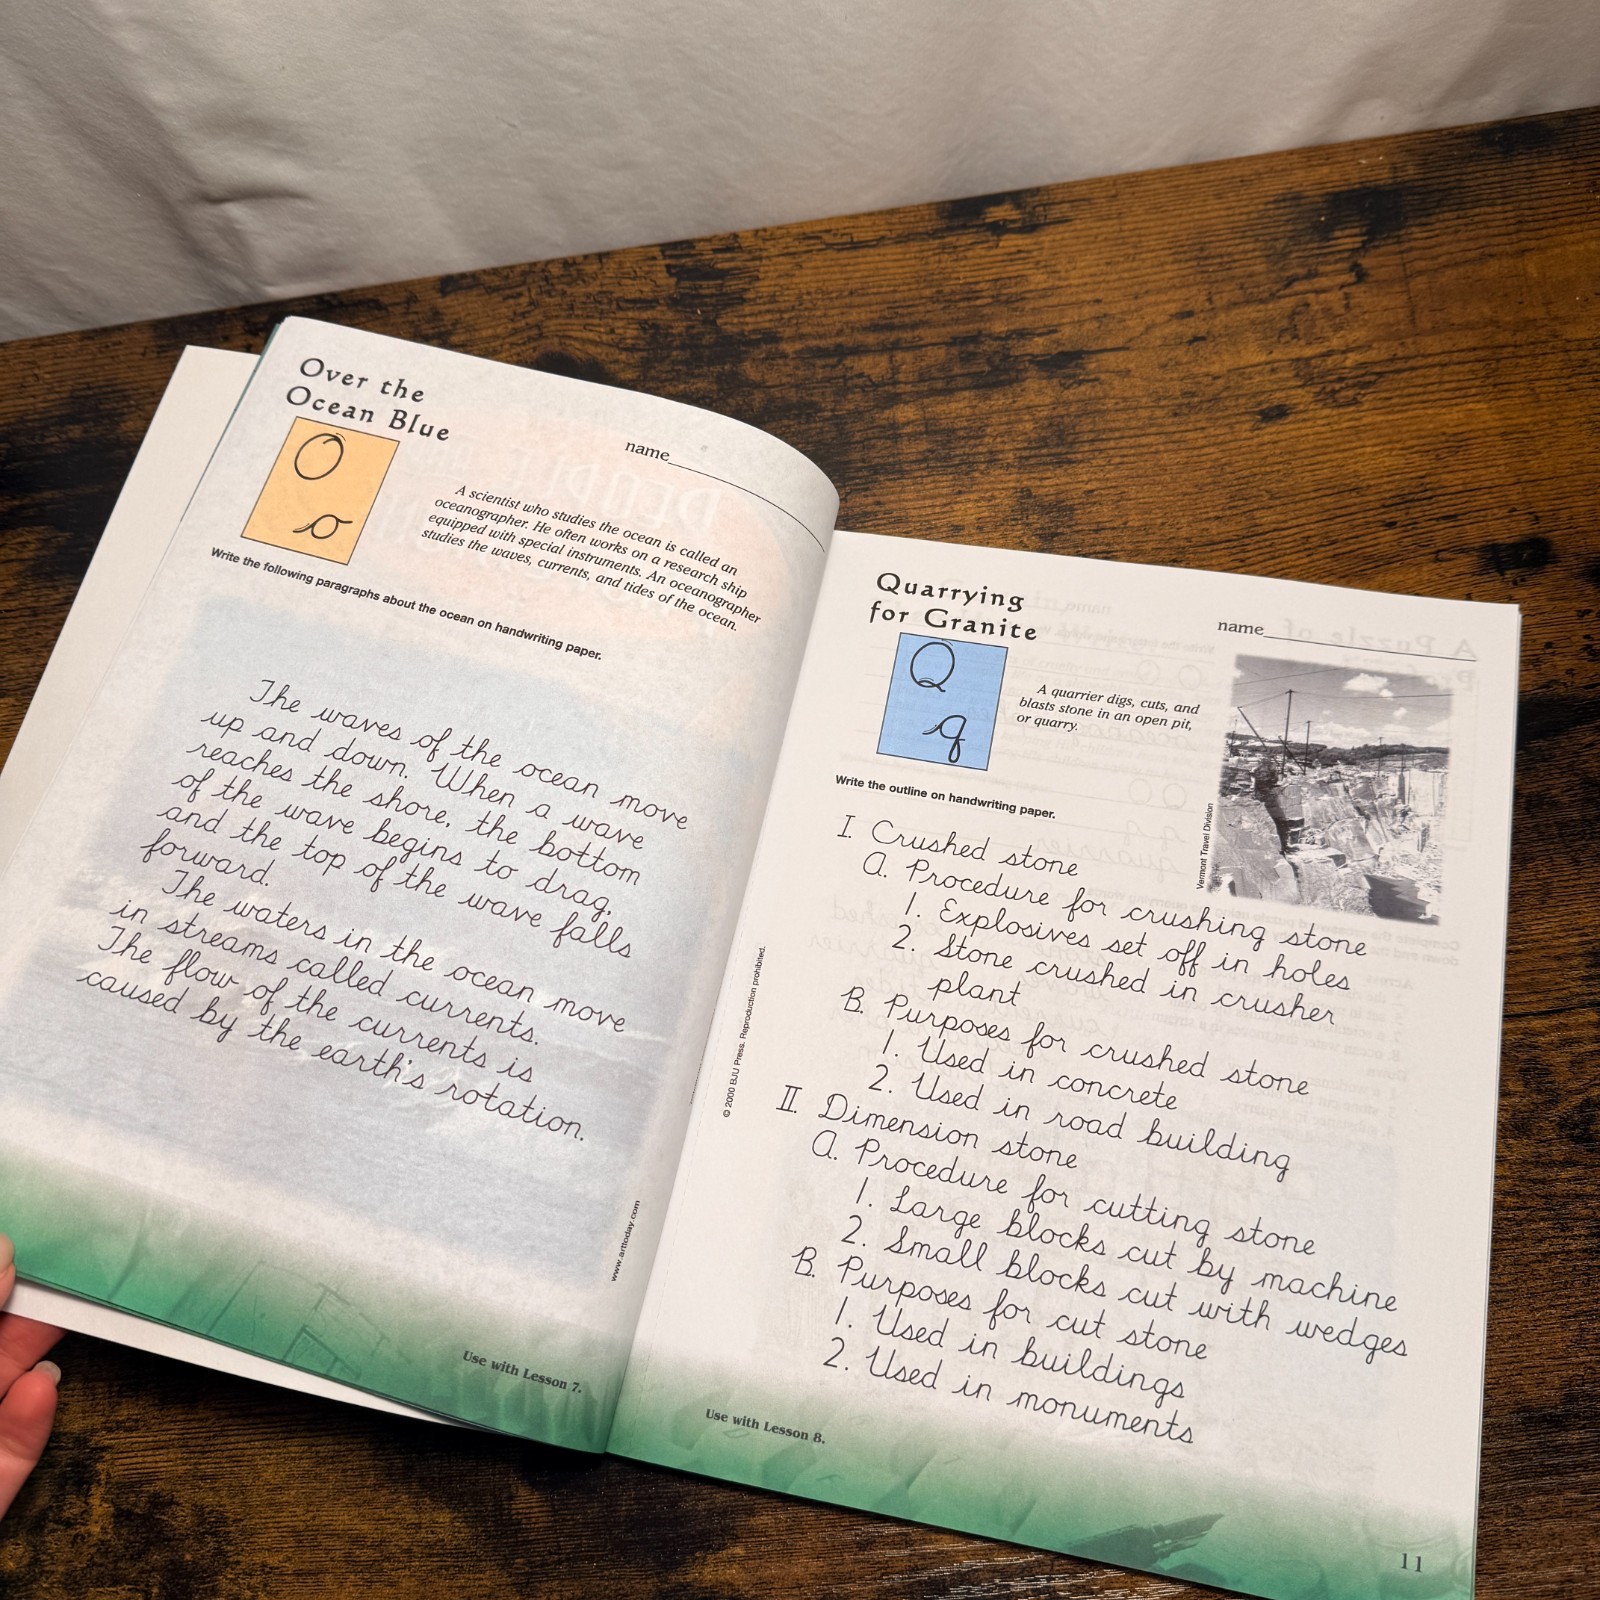 Over the
Ocean Blue
O
o
name
A scientist who studies the ocean is called an
oceanographer. He often works on a research ship
equipped with special instruments. An oceanographer
studies the waves, currents, and tides of the ocean.
Write the following paragraphs about the ocean on handwriting paper.
The waves of the ocean move
up and down. When a wave
reaches the shore, the bottom
of the wave begins to drag,
and the top of the wave falls
forward.
The waters in the ocean move
in streams called currents.
The flow of the currents is
caused by the earth's rotation.
www.arttoday.com
Use with Lesson 7.
Quarrying
for Granite
Q
q
name
A quarrier digs, cuts, and
blasts stone in an open pit,
or quarry.
Vermont Travel Division
Write the outline on handwriting paper.
I. Crushed stone
A. Procedure for crushing stone
1. Explosives set off in holes
2. Stone crushed in crusher
plant
B. Purposes for crushed stone
1. Used in concrete
2. Used in road building
II. Dimension stone
A. Procedure for cutting stone
1. Large blocks cut by machine
2. Small blocks cut with wedges
B. Purposes for cut stone
1. Used in buildings
2. Used in monuments
© 2000 BJU Press. Reproduction prohibited.
Use with Lesson 8.
11